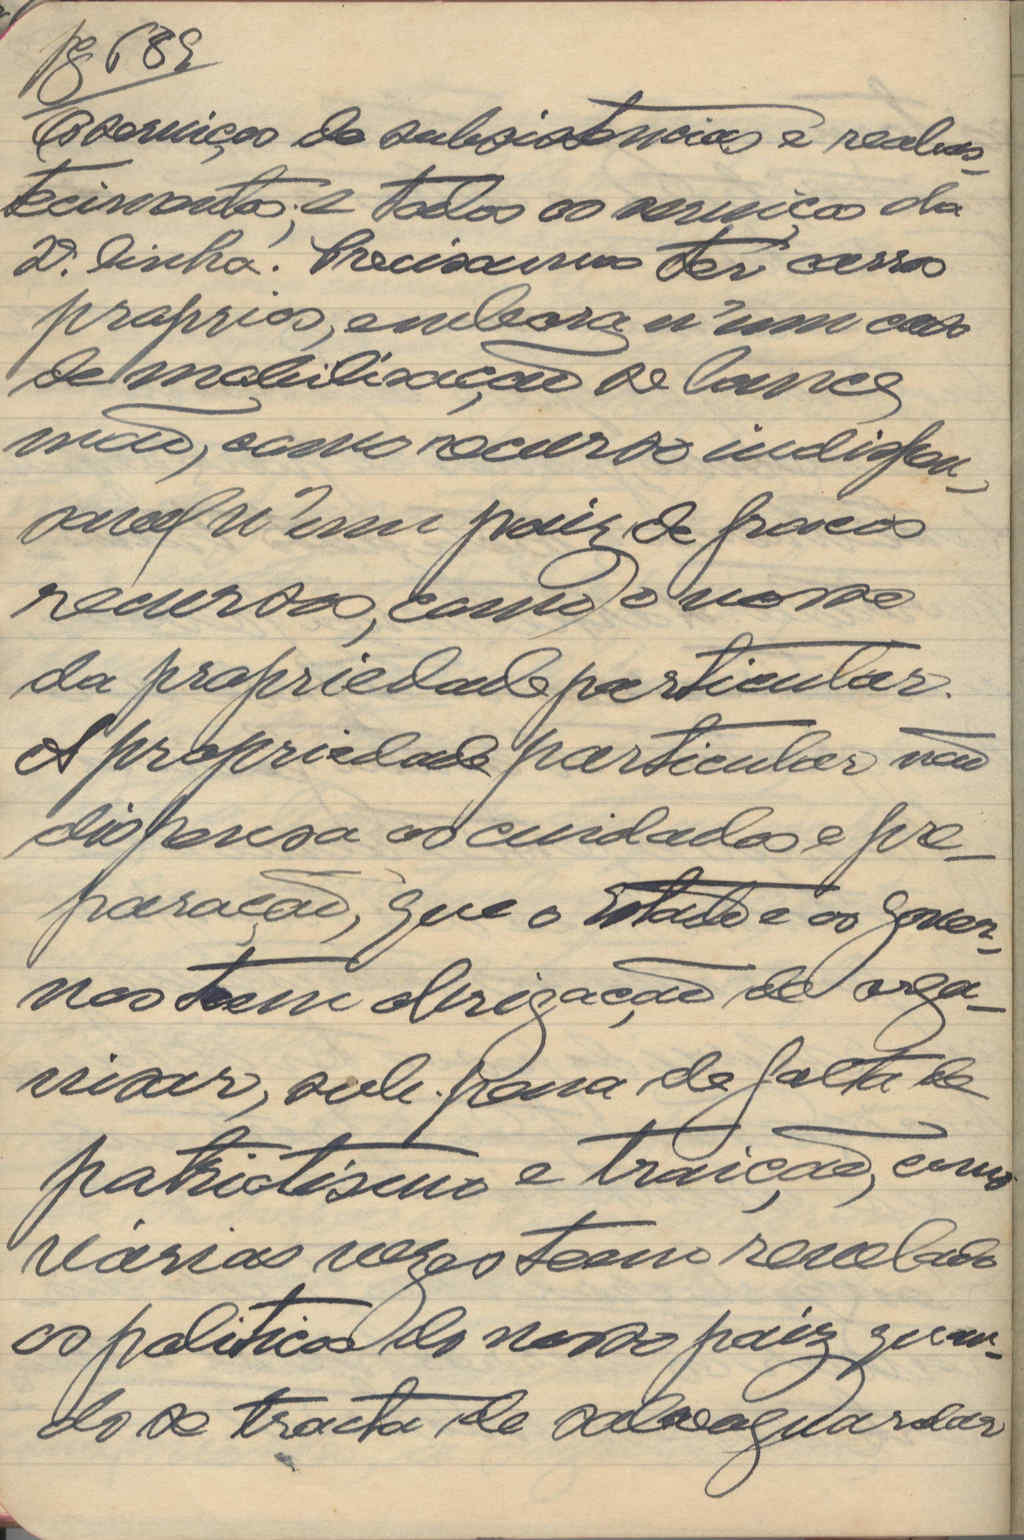 pg 689
Os serviços de subsistencias e reabas-
tecimentos; e todos os serviços da
2ª. linha. Precisamos ter carros
proprios, embora n'um caso
de mobilisação se lance
mão, como recurso indispen-
savel n'um paiz de fracos
recursos, como o nosso
da propriedade particular.
A propriedade particular não
dispensa os cuidados e pre-
paração, que o Estado e os gover-
nos teem obrigação de orga-
nisar, sob pena de falta de
patriotismo e traição, como
várias vezes teem revelado
os politicos do nosso paiz quan-
do se tracta de salvaguardar